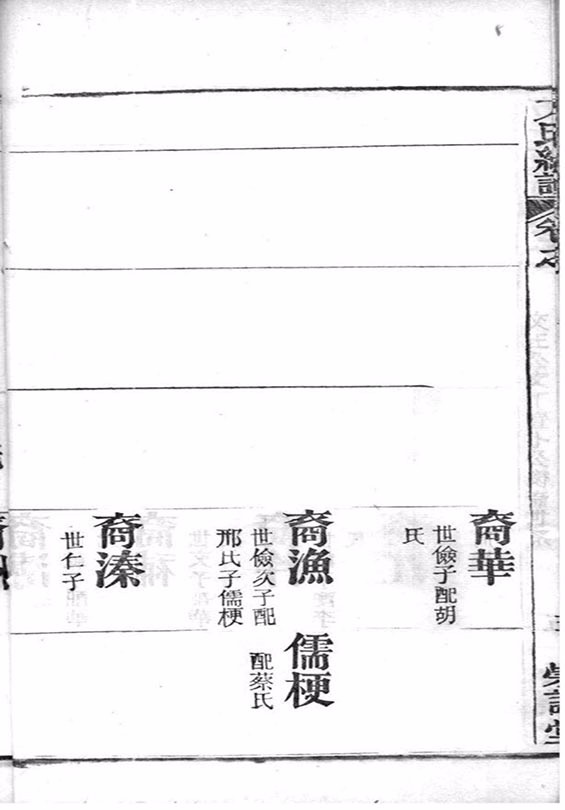 裔華
世儉子配胡
氏
裔漁
世儉次子配
邢氏子儒梗
儒梗
配蔡氏
裔溱
世仁子